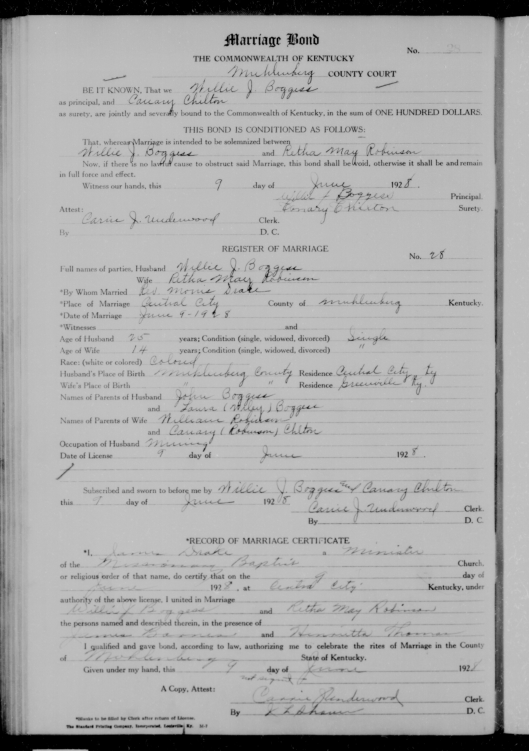 Marriage Bond
No.
THE COMMONWEALTH OF KENTUCKY
Muhlenberg COUNTY COURT
BE IT KNOWN, That we Willie J. Boggess
as principal, and Canary Chilton
as surety, are jointly and severally bound to the Commonwealth of Kentucky, in the sum of ONE HUNDRED DOLLARS.
THIS BOND IS CONDITIONED AS FOLLOWS:
That, whereas Marriage is intended to be solemnized between
Willie J. Boggess and Retha May Robinson
Now, if there is no lawful cause to obstruct said Marriage, this bond shall be void, otherwise it shall be and remain
in full force and effect.
Witness our hands, this 9 day of June 1928.
Boggess Principal.
Attest: Canary Chilton Surety.
Carrie J. Underwood Clerk.
By D. C.
REGISTER OF MARRIAGE
No. 28
Full names of parties, Husband Willie J. Boggess
Wife Retha May Robinson
*By Whom Married Rev. Drake
*Place of Marriage Central City County of Muhlenberg Kentucky.
*Date of Marriage June 9-1928
*Witnesses and
Age of Husband 25 years; Condition (single, widowed, divorced) Single
Age of Wife 14 years; Condition (single, widowed, divorced) "
Race: (white or colored) Colored
Husband's Place of Birth Muhlenberg County Residence Central City Ky
Wife's Place of Birth " " Residence Greenville Ky.
Names of Parents of Husband John Boggess
and Laura (Wiley) Boggess
Names of Parents of Wife William Robinson
and Canary (Robinson) Chilton
Occupation of Husband Mining
Date of License 9 day of June 1928.
Subscribed and sworn to before me by Willie J. Boggess and Canary Chilton
this 9 day of June 1928
Carrie J. Underwood Clerk.
By D. C.
*RECORD OF MARRIAGE CERTIFICATE
*I, Drake a Minister
of the Missionary Baptist Church,
or religious order of that name, do certify that on the 9 day of
June 1928, at Central City Kentucky, under
authority of the above license, I united in Marriage
Willie J Boggess and Retha May Robinson
the persons named and described therein, in the presence of
Barnes and Thomas
I qualified and gave bond, according to law, authorizing me to celebrate the rites of Marriage in the County
of Muhlenberg State of Kentucky.
Given under my hand, this 9 day of June 1928
A Copy, Attest:
Carrie J Underwood Clerk.
By D. C.
*Blanks to be filled by Clerk after return of License.
The Standard Printing Company, Incorporated, Louisville, Ky.